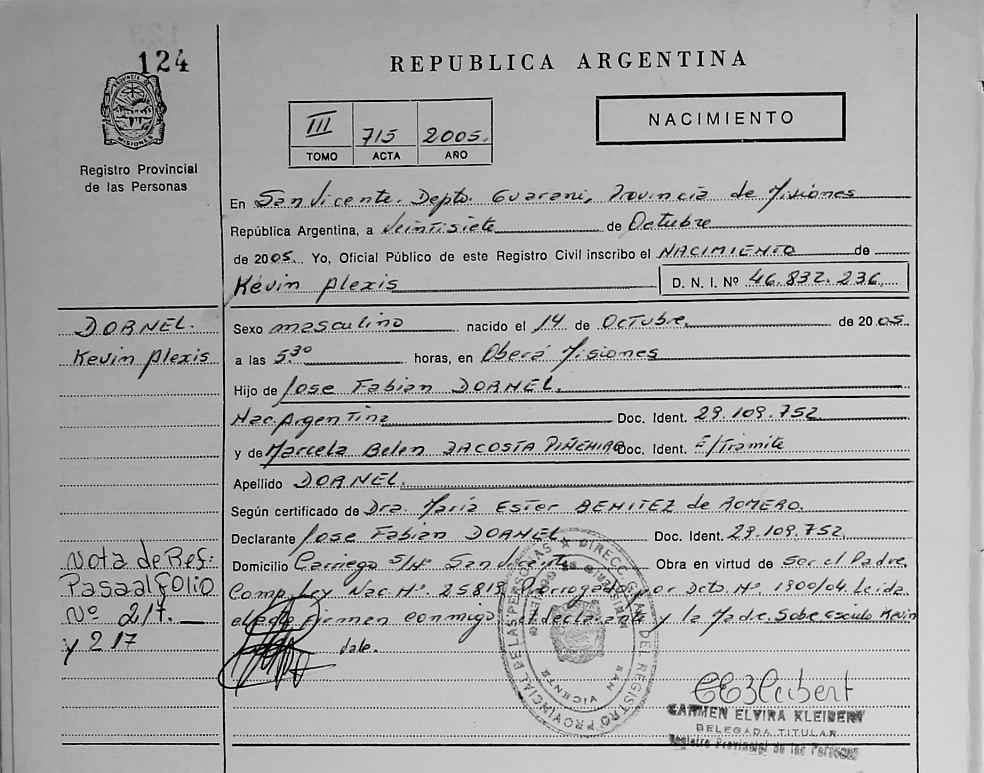 124
REPUBLICA ARGENTINA
PROVINCIA DE MISIONES
Registro Provincial
de las Personas
III 715 2005.
TOMO ACTA AÑO
NACIMIENTO
En San Vicente. Depto. Guaraní, Provincia de Misiones
República Argentina, a Veintisiete de Octubre
de 2005. Yo, Oficial Público de este Registro Civil inscribo el NACIMIENTO de
Kevin Alexis D. N. I. Nº 46.832.236
DORNEL.
Kevin Alexis
Sexo masculino nacido el 14 de Octubre. de 2005
a las 5³⁰ horas, en Oberá Misiones
Hijo de Jose Fabian DORNEL.
Nac. Argentina Doc. Ident. 29.109.752
y de Marcela Belen DACOSTA PIÑEHIRO Doc. Ident. E/Trámite
Apellido DORNEL.
Según certificado de Dra. María Ester BENITEZ de ROMERO.
Declarante Jose Fabian DORNEL Doc. Ident. 29.109.752.
Domicilio Carriego S/Nº San Vicente Obra en virtud de Ser el Padre.
Comp. Ley Nac. Nº. 25819 Prorrogado por Dcto. Nº. 1900/04. Leida
el acta firman conmigo el declarante y la Madre. Sobre escrito Kevin
Vale.
Nota de Ref:
Pasa al folio
Nº 217.
y 217
DIRECC. GRAL. DEL REGISTRO PROVINCIAL DE LAS PERSONAS
MINISTERIO DE GOBIERNO
SAN VICENTE
CARMEN ELVIRA KLEIBERT
DELEGADA TITULAR
Registro Provincial de las Personas